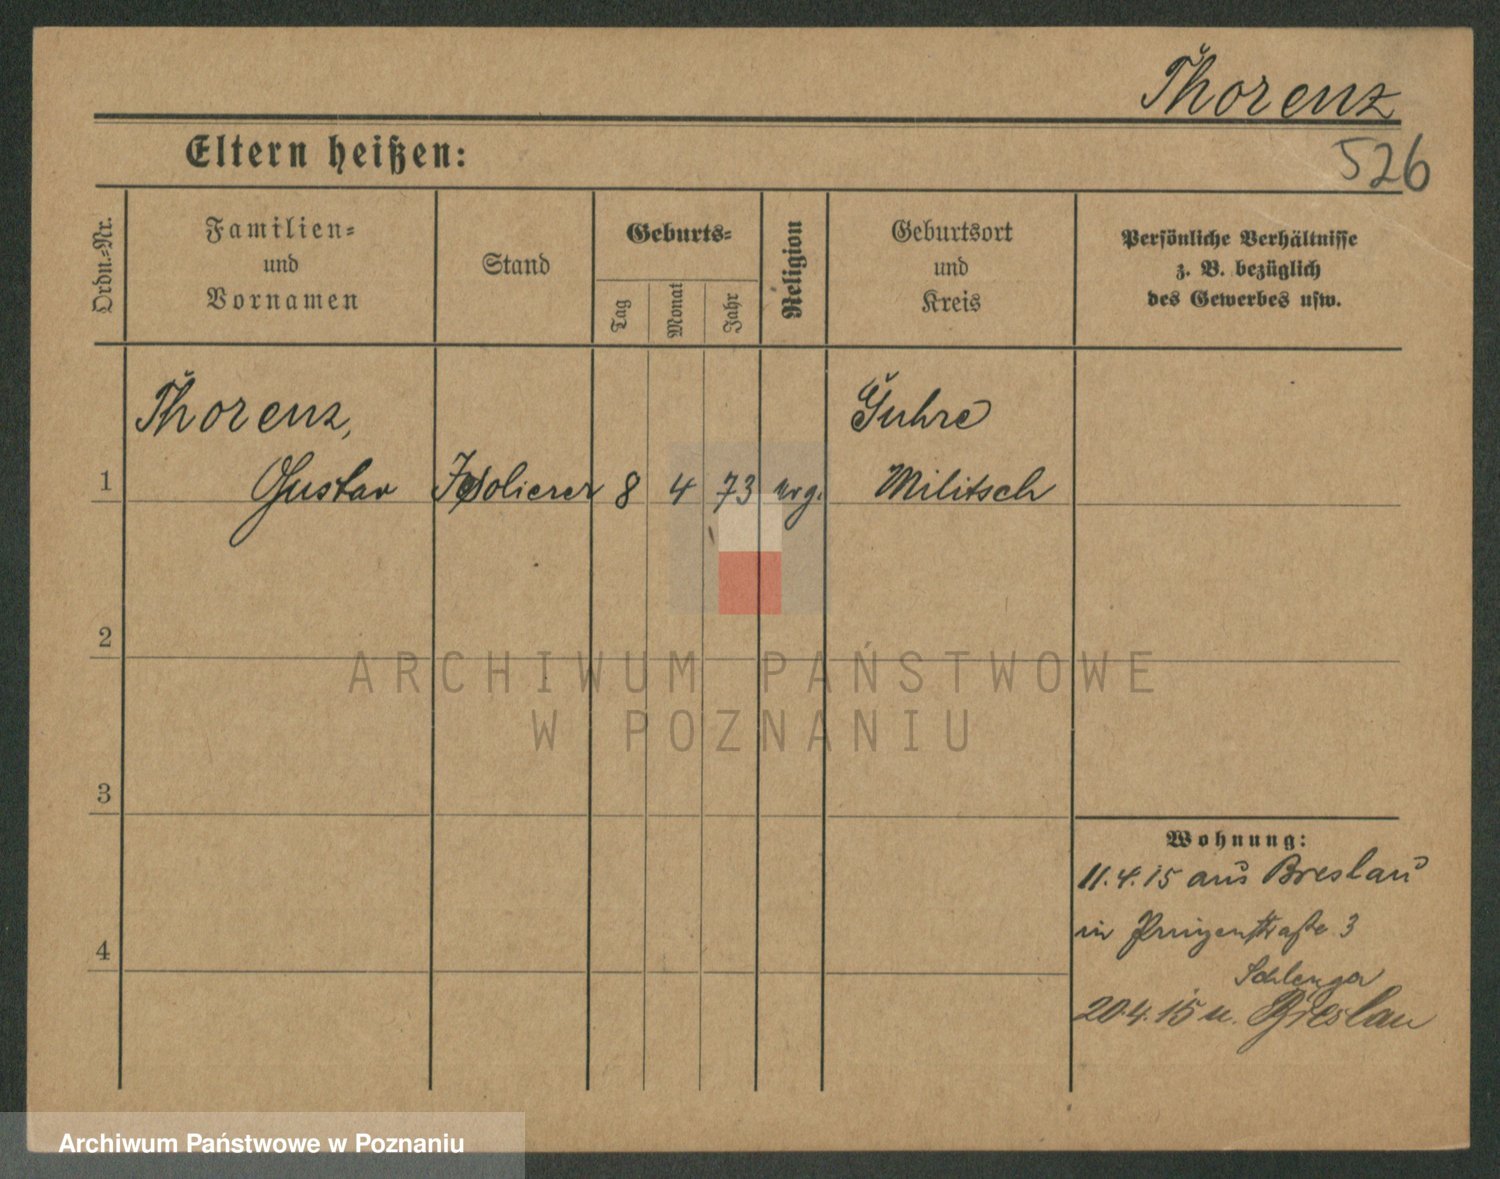 Thorenz
526
Eltern heißen:
Ordn.-Nr.
Familien-
und
Vornamen
Stand
Geburts-
Tag
Monat
Jahr
Religion
Geburtsort
und
Kreis
Persönliche Verhältnisse
z. B. bezüglich
des Gewerbes usw.
Thorenz,
Guhre
1 Gustav Isolierer 8 4 73 evg. Militsch
2
ARCHIWUM PAŃSTWOWE
W POZNANIU
3
Wohnung:
11.4.15 aus Breslau
in Prinzenstraße 3
4
20.4.15 n. Breslau
Archiwum Państwowe w Poznaniu